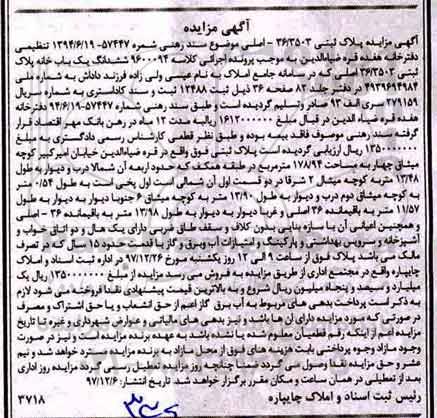 آگهی مزایده
آگهی مزایده پلاک ثبتی ۳۶/۳۵۰۳ - اصلی موضوع سند رهنی شمره ۵۷۴۴۷-۱۳۹۴/۶/۱۹ تنظیمی
دفترخانه هفده قره ضیاالدین به موجب پرونده اجرائی کلاسه ۹۶۰۰۰۹۴ ششدانگ یک باب خانه پلاک
ثبتی ۳۶/۳۵۰۳ اصلی که در سامانه جامع املاک به نام عیسی ولی زاده فرزند داداش به شماره ملی
۴۹۳۹۶۴۹۸۴ در دفتر جلد ۸۲ صفحه ۳۶ ذیل ثبت ۱۲۴۸۸ ثبت و سند کاداستری به شماره سریال
۲۷۹۱۵۹ سری الف ۹۳ صادر وتسلیم گردیده است و طبق سند رهنی شماره ۵۷۴۴۷-۹۴/۶/۱۹ دفترخانه
هفده قره ضیاء الدین در قبال مبلغ ۱۶۱۳۰۰۰۰۰۰ ریالبه مدت ۱۲ ماه در رهن بانک مهر اقتصاد قرار
گرفته سند رهنی موصوف فاقد بیمه بوده و طبق نظر قطعی کارشناس رسمی دادگستری به مبلغ
ریال ارزیابی گردیده است پلاک ثبتی فوق واقع در قره ضیاءالدین خیابان امیرکبیر کوچه
میثاق چهار به مساحت ۱۷۸/۹۴ مترمربع در طبقه همکف که حدود اربعه آن شمالا درب و دیوار به طول
۱۳/۴۸ متر به کوچه میثال ۲ شرقا در دو قسمت اول آن شمالی است اول پخی است به طول ۰/۵۴ متر
به کوچه میثاق دوم درب و دیوار به طول ۱۳/۹۰ متر به کوچه میثاق ۶ جنوبا دیوار به دیوار به طول
۱۱/۵۷ متر به باقیمانده ۳۶ اصلی و غربا دیوار به دیوار به طول ۱۳/۹۸ متر به باقیمانده ۳۶ - اصلی
و همچنین اعیانی آن با سازه بنایی بدون کلاف و سقف طاق ضربی دارای یک هال و دو اتاق خواب و
آشپزخانه و سرویس بهداشتی و پارکینگ و امتیازات آب وبرق و گاز با قدمت حدود ۱۵ سال که در تصرف
مالک می باشد پلاک فوق از ساعت ۹ الی ۱۲ روز یکشنبه مورخ ۹۷/۱۲/۲۶ در اداره ثبت اسناد و املاک
چایپاره واقع در مجتمع اداری از طریق مزایده به فروش می رسد مزایده از مبلغ ۱۳۵۰۰۰۰۰۰۰ ریال یک
میلیارد و سیصد و پنجاه میلیون ریال شروع و به بالاترین قیمت پیشنهادی نقدا فروخته می شود لازم
به ذکر است پرداخت بدهی های مربوط به آب برق گاز اعم از حق انشعاب و یا حق اشتراک و مصرف
در صورتی که مورد مزایده دارای آن ها باشد و نیز بدهی های مالیاتی و عوارض شهرداری و غیره تا تاریخ
مزایده اعم از اینکه رقم قطعیان معلوم شده یا نشده باشد به عهده برنده مزایده است و نیز در صورت
وجود مازاد وجوه پرداختی بابت هزینه های فوق از محل مازاد به برنده مزایده مسترد خواهد شد و نیم
عشر و حق مزایده نقدا وصول می گردد ضمنا چنانچه روز مزایده تعطیل رسمی گردد مزایده روز اداری
بعد از تعطیلی در همان ساعت و مکان مقرر برگزار خواهد شد. تاریخ انتشار: ۹۷/۱۲/۶
رئیس ثبت اسناد و املاک چایپاره
۳۷۱۸